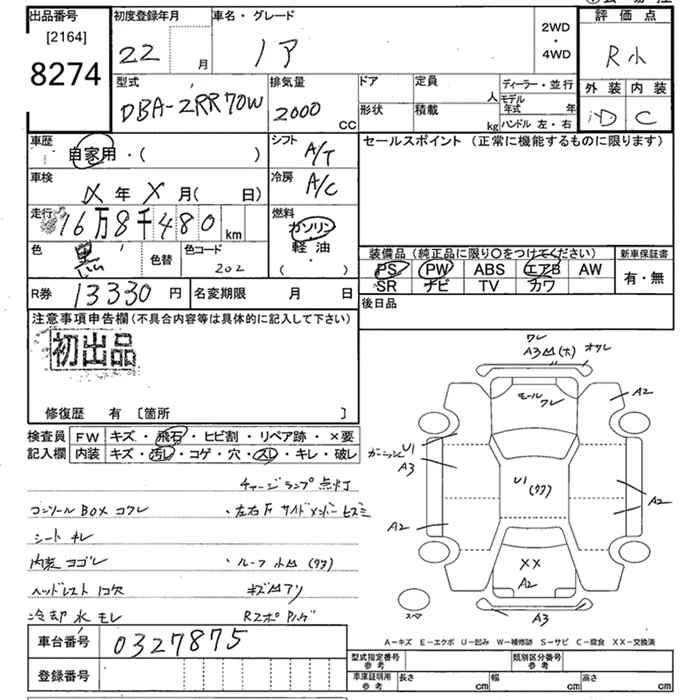 出品番号
[2164]
8274
初度登録年月
22
月
車名・グレード
ノア
2WD
・
4WD
評価点
R小
外装 内装
D C
型式
DBA-ZRR70W
排気量
2000 CC
ドア
定員
人
形状
積載
kg
ディーラー・並行
モデル
年式 年
ハンドル 左・右
車歴
自家用・( )
シフト
A/T
車検
メ 年 メ 月( 日)
冷房
A/C
走行
16万8千480 km
燃料
ガソリン
軽油
( ・ )
色
黒
色替
色コード
202
R券 13330 円
名変期限 月 日
セールスポイント (正常に機能するものに限ります)
装備品(純正品に限り〇をつけてください)
PS PW ABS エアB AW
SR ナビ TV カワ
新車保証書
有・無
後日品
注意事項申告欄(不具合内容等は具体的に記入して下さい)
初出品
修復歴 有 [箇所 ]
検査員
記入欄
FW キズ・飛石・ヒビ割・リペア跡・×要
内装 キズ・汚レ・コゲ・穴・スレ・キレ・破レ
チャージランプ点灯
コンソールBOX コワレ
・左右F サイドメンバーヒズミ
シート キレ
内装 ヨゴレ
・ルーフ 小凹 (ワワ)
ヘッドレスト 1コ欠
キズ凹アリ
冷却水モレ
ワレ
A3凹(大) オサレ
モール
ワレ
A2
U1
A3
U1
A2
A2
XX
A2
スペア
A3
A−キズ E−エクボ U−凹み W−補修跡 S−サビ C−腐食 XX−交換済
車台番号 0327875
登録番号
型式指定番号
参考
類別区分番号
参考
車庫証明用
参考
長さ cm
幅 cm
高さ cm